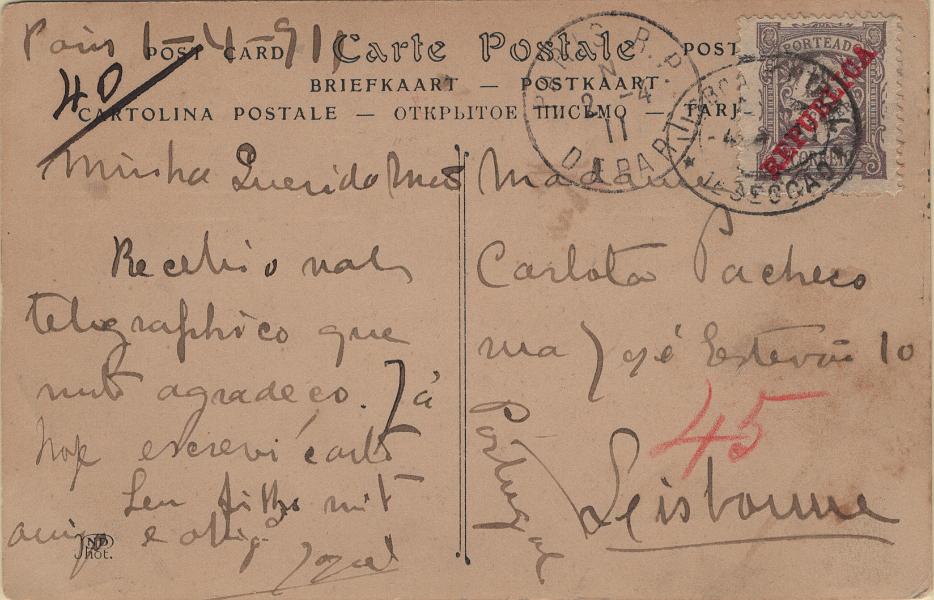 Paris 1-4-911
40
POST CARD Carte Postale POST
BRIEFKAART — POSTKAART
CARTOLINA POSTALE — ОТКРЫТОЕ ПИСЬМО — TARJ
PARIS R.P.
2 -4
11
DEPART
PORTEADO
REPUBLICA
CORREIO
SECCAO
Minha Querida Mãe
Recebi o vale
telegraphico que
mto agradeço. Já
hoje escrevi carta
Seu filho mt
amigo e obrigº
José
ND
Phot.
Madame
Carlota Pacheco
rua José Estevão 10
45
Portugal
Lisbonne